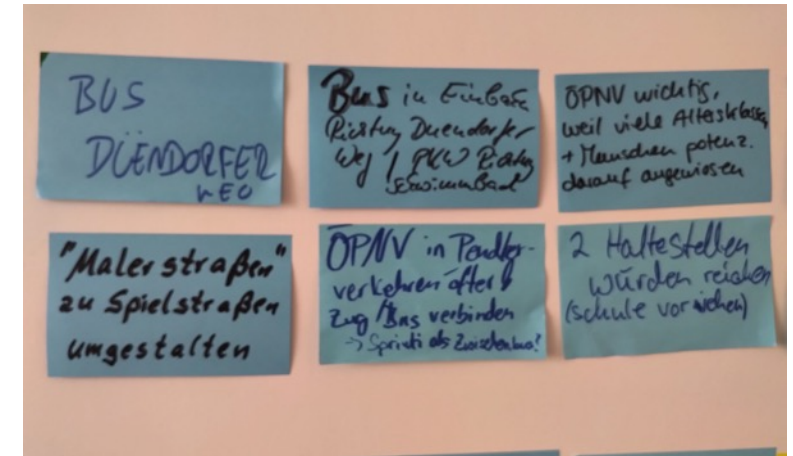 BUS
DÜENDORFER
WEG
Bus in Einbahn
Richtung Duendorfer
Weg / PKW Richtung
Schwimmbad
ÖPNV wichtig,
weil viele Altersklassen
+ Menschen potenz.
darauf angewiesen
"Malerstraßen"
zu Spielstraßen
umgestalten
ÖPNV in Pendler-
verkehren öfter!
Zug/Bus verbinden
→ Sprinti als Zwischenbus?
2 Haltestellen
würden reichen
(schule vor